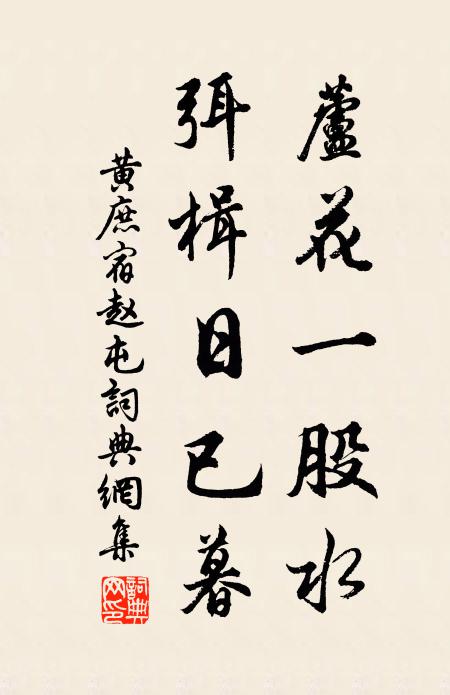 蘆花一股水
弭楫日已暮
黃庶宿赵屯詞典網集
詞典网印